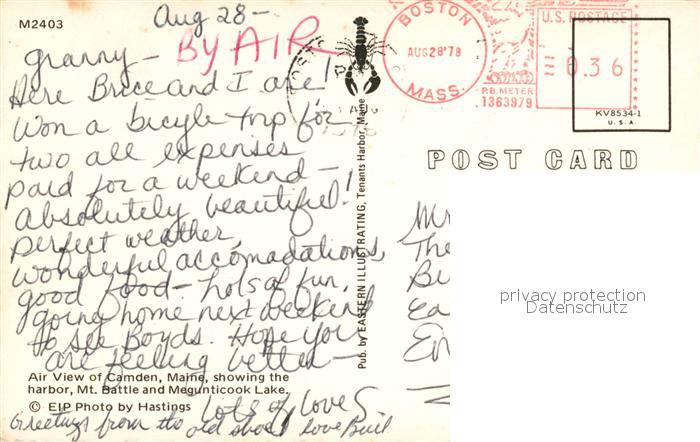 M2403
Aug 28-
Granny - BY AIR
Here Bruce and I are!
Won a bicycle trip for
two all expenses
paid for a weekend -
absolutely beautiful!
perfect weather,
wonderful accomodations,
good food - hots of fun,
going home next weekend
to see Boyds. Hope you
are feeling better -
Air View of Camden, Maine, showing the
harbor, Mt. Battie and Megunticook Lake.
© EIP Photo by Hastings
Lots of love S
Greetings from the old shoe love
Pub. by EASTERN ILLUSTRATING, Tenants Harbor, Maine
BOSTON
AUG 28'78
MASS.
P.B. METER
1363979
U.S. POSTAGE
0.36
KV8534-1
U.S.A.
POST CARD
Mr
The
Ea
privacy protection
Datenschutz